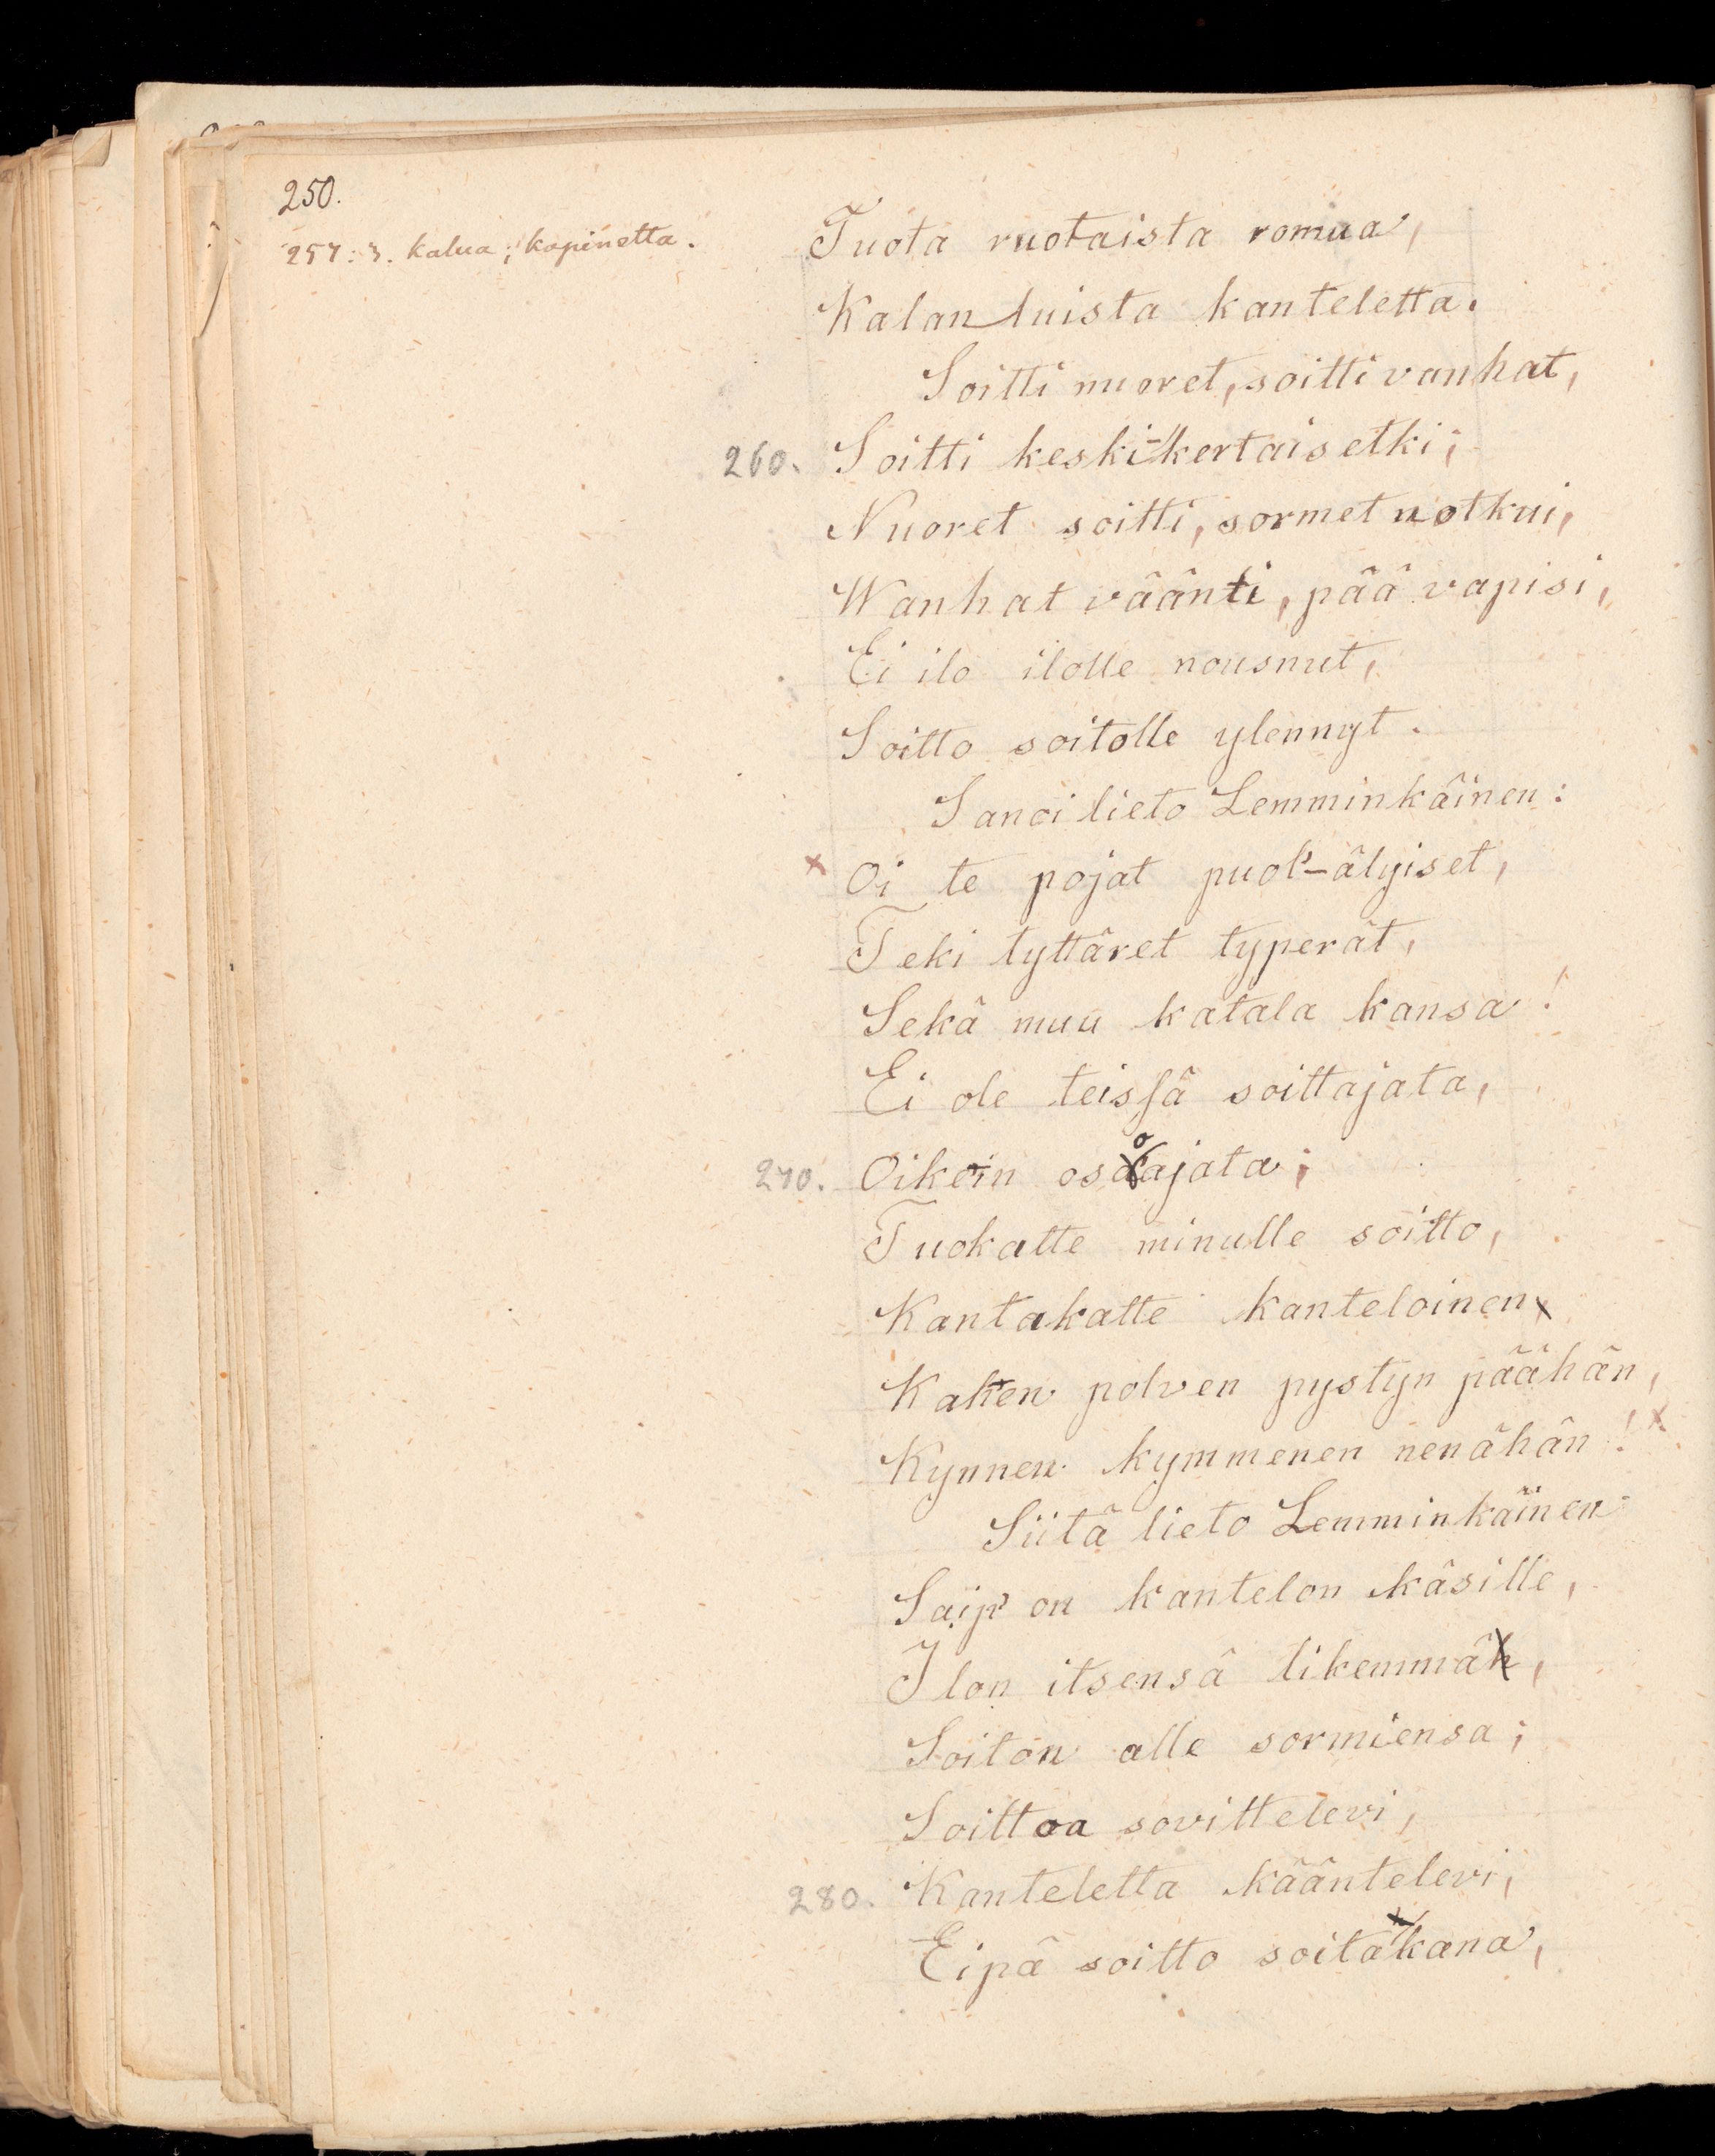 250.
257: 3. kalua; kapinetta.
Tuota ruotaista romua,
Kalanluista kanteletta.
Soitti nuoret, soitti vanhat,
260. Soitti keski-kertaisetki;
Nuoret soitti, sormet notkui,
Wanhat väänti, pää vapisi,
Ei ilo ilolle nousnut,
Soitto soitolle ylennyt.
Sanoi lieto Lemminkäinen:
× Oi te pojat puol'-älyiset,
Teki tyttäret typerät,
Sekä muu katala kansa!
Ei ole teissä soittajata,
270. Oikein osaajata;
Tuokatte minulle soitto,
Kantakatte kanteloinen
Kahen polven pystyn päähän,
Kynnen kymmenen nenähän! ×
Siitä lieto Lemminkäinen
Saip' on kantelon käsille,
Ilon itsensä likemmä,
Soiton alle sormiensa;
Soittoa sovittelevi,
280. Kanteletta kääntelevi;
Eipä soitto soitakana,